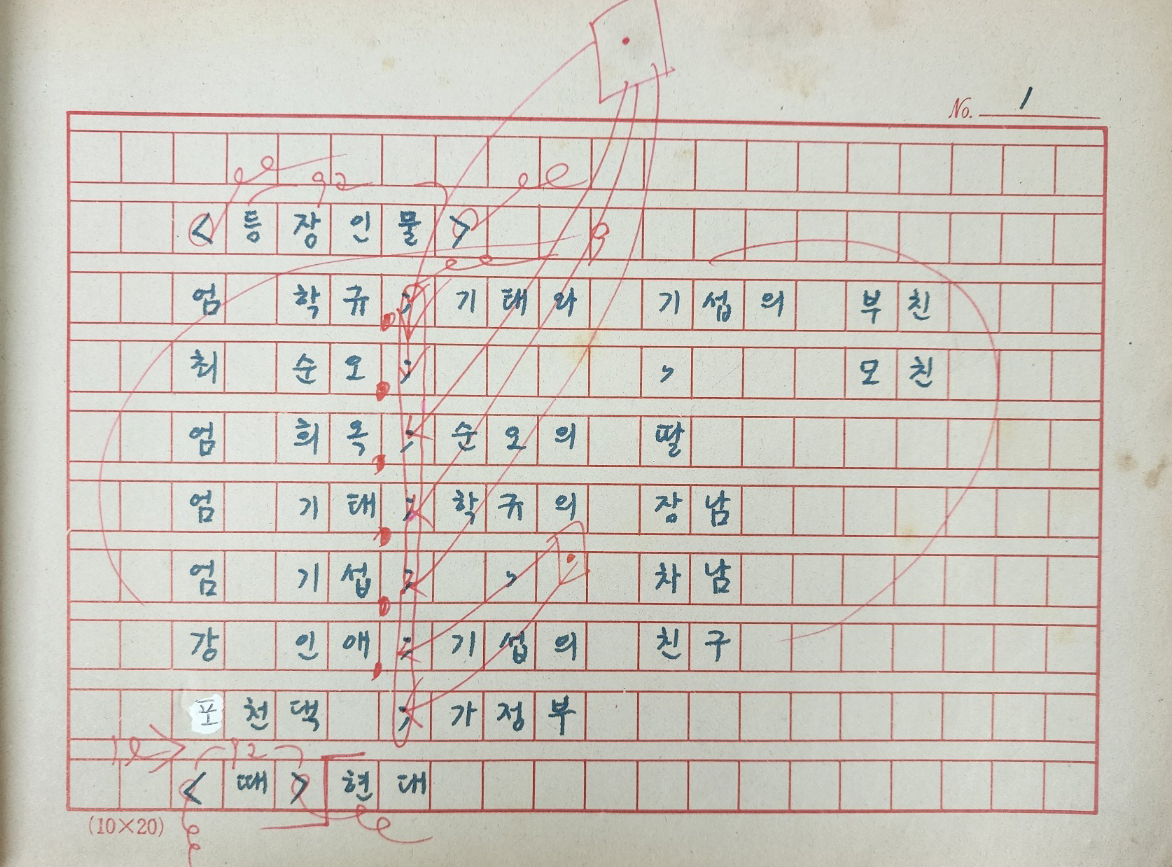 No. 1
<등장인물>
엄 학규; 기태와 기섭의 부친
최 순오; 〃 모친
엄 희옥; 순오의 딸
엄 기태; 학규의 장남
엄 기섭; 〃 차남
강 인애; 기섭의 친구
포천댁 ; 가정부
<때> 현대
(10×20)